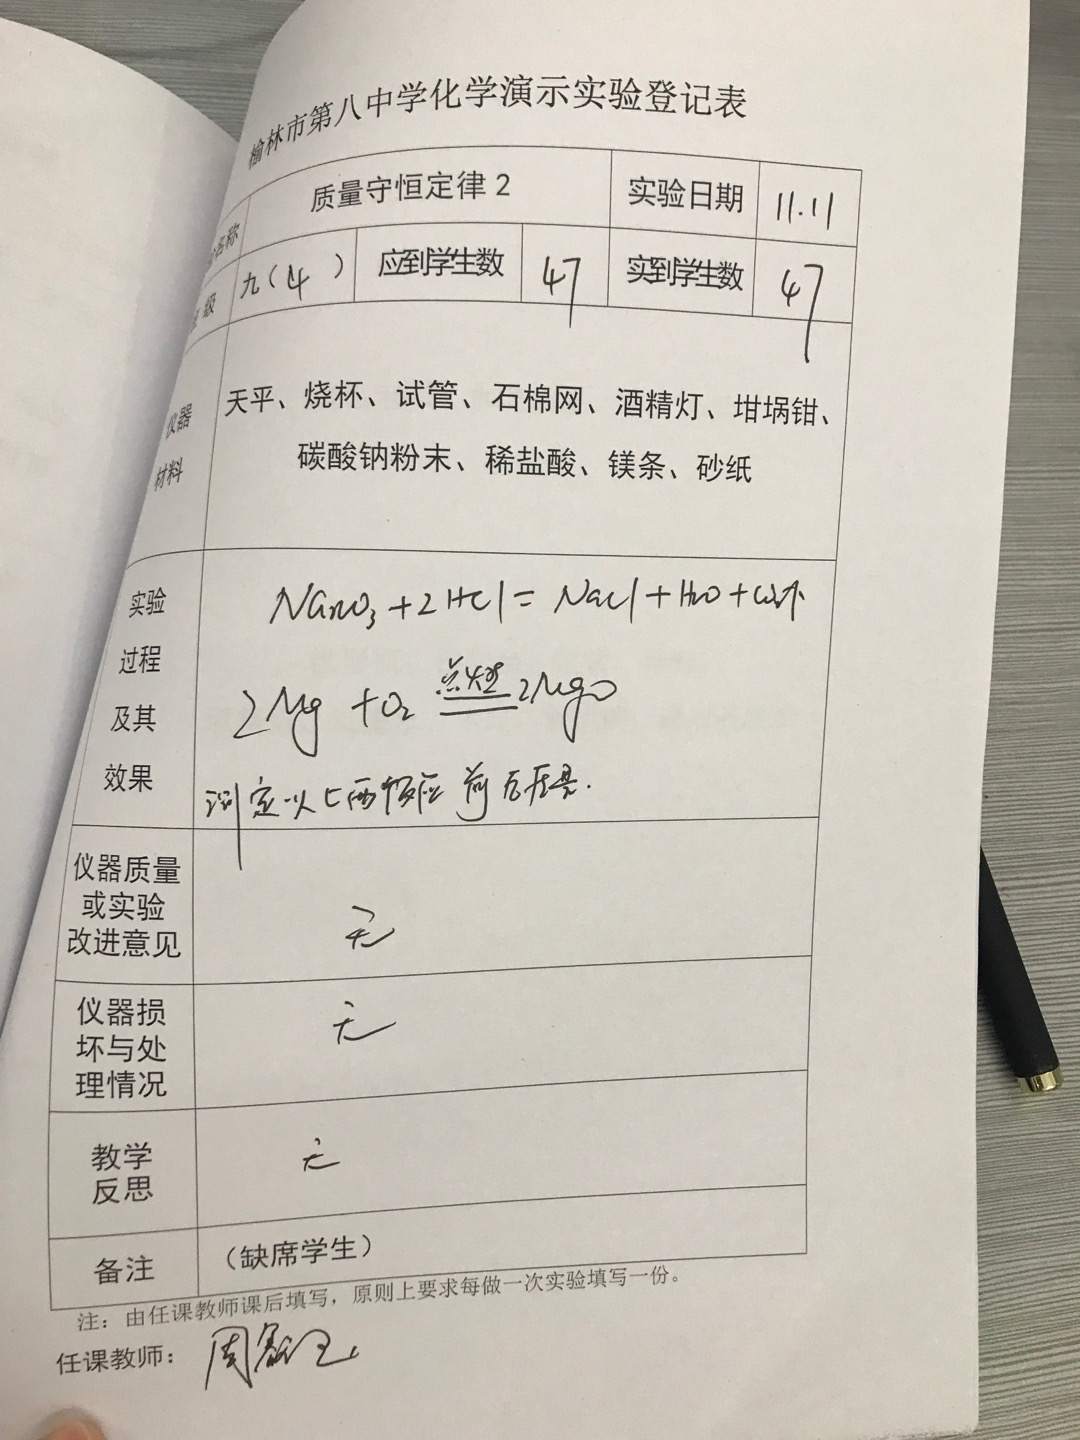 榆林市第八中学化学演示实验登记表
名称 质量守恒定律 2 实验日期 11.11
级 九（4） 应到学生数 47 实到学生数 47
仪器
材料
天平、烧杯、试管、石棉网、酒精灯、坩埚钳、
碳酸钠粉末、稀盐酸、镁条、砂纸
实验
过程
及其
效果
+2HCl = NaCl + H2O + CO2↑
2Mg + O2 点燃 2MgO
测定以上两个反应前后质量.
仪器质量
或实验
改进意见
无
仪器损
坏与处
理情况
无
教学
反思
无
备注 （缺席学生）
注：由任课教师课后填写，原则上要求每做一次实验填写一份。
任课教师：周